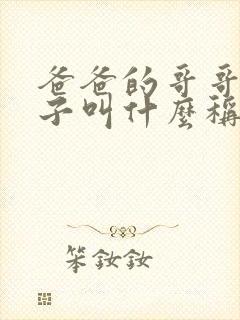 爸爸的哥哥
子叫什麼稱
笨釹釹